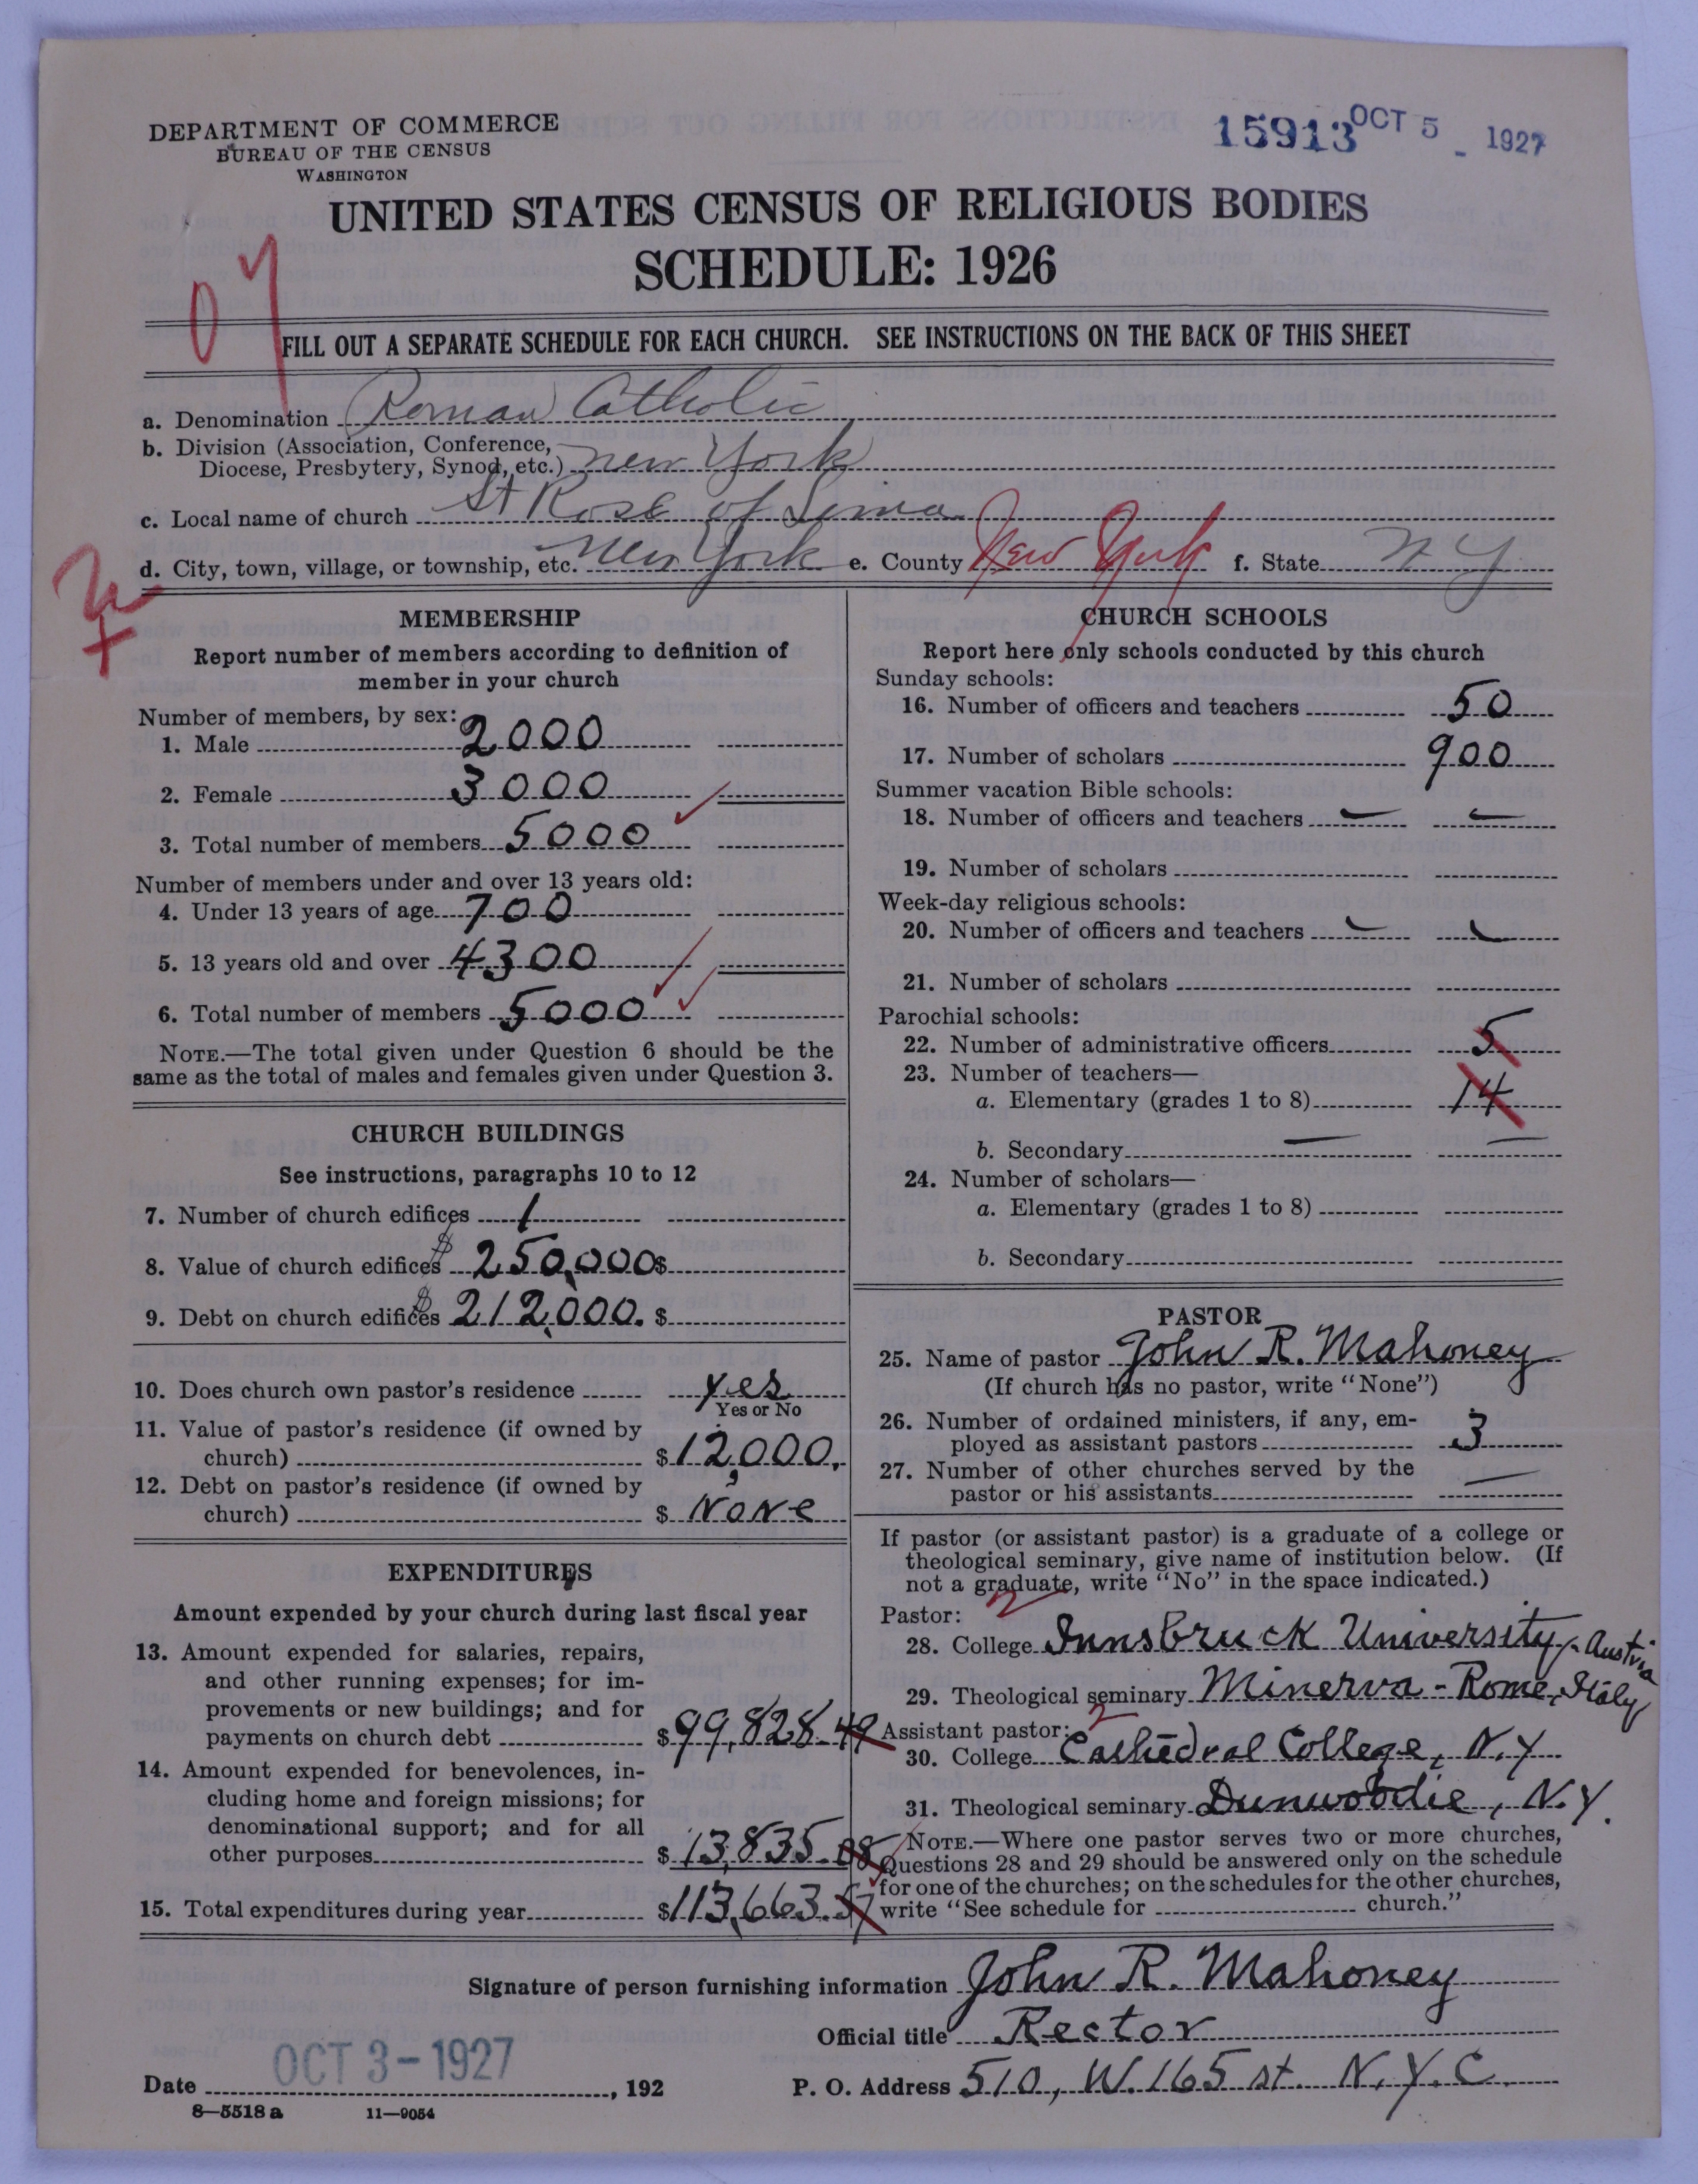 DEPARTMENT OF COMMERCE
BUREAU OF THE CENSUS
WASHINGTON
15913 OCT 5 1927
UNITED STATES CENSUS OF RELIGIOUS BODIES
SCHEDULE: 1926
07
FILL OUT A SEPARATE SCHEDULE FOR EACH CHURCH. SEE INSTRUCTIONS ON THE BACK OF THIS SHEET
a. Denomination Roman Catholic
b. Division (Association, Conference,
Diocese, Presbytery, Synod, etc.) New York
c. Local name of church St Rose of Lima
d. City, town, village, or township, etc. New York e. County New York f. State N Y
MEMBERSHIP
Report number of members according to definition of
member in your church
Number of members, by sex:
1. Male 2000
2. Female 3000
3. Total number of members 5000
Number of members under and over 13 years old:
4. Under 13 years of age 700
5. 13 years old and over 4300
6. Total number of members 5000
NOTE.—The total given under Question 6 should be the
same as the total of males and females given under Question 3.
CHURCH BUILDINGS
See instructions, paragraphs 10 to 12
7. Number of church edifices 1
8. Value of church edifices $ 250,000 $
9. Debt on church edifices $ 212,000. $
10. Does church own pastor's residence yes
Yes or No
11. Value of pastor's residence (if owned by
church) $ 12,000.
12. Debt on pastor's residence (if owned by
church) $ None
EXPENDITURES
Amount expended by your church during last fiscal year
13. Amount expended for salaries, repairs,
and other running expenses; for im-
provements or new buildings; and for
payments on church debt $ 99,828.49
14. Amount expended for benevolences, in-
cluding home and foreign missions; for
denominational support; and for all
other purposes $ 13,835.08
15. Total expenditures during year $ 113,663.57
CHURCH SCHOOLS
Report here only schools conducted by this church
Sunday schools:
16. Number of officers and teachers 50
17. Number of scholars 900
Summer vacation Bible schools:
18. Number of officers and teachers — —
19. Number of scholars
Week-day religious schools:
20. Number of officers and teachers — —
21. Number of scholars
Parochial schools:
22. Number of administrative officers 5
23. Number of teachers—
a. Elementary (grades 1 to 8) 14
b. Secondary — —
24. Number of scholars—
a. Elementary (grades 1 to 8)
b. Secondary
PASTOR
25. Name of pastor John R. Mahoney
(If church has no pastor, write "None")
26. Number of ordained ministers, if any, em-
ployed as assistant pastors 3
27. Number of other churches served by the
pastor or his assistants —
If pastor (or assistant pastor) is a graduate of a college or
theological seminary, give name of institution below. (If
not a graduate, write "No" in the space indicated.)
Pastor: 2
28. College Innsbruck University, Austria
29. Theological seminary Minerva - Rome, Italy
Assistant pastor: 2
30. College Cathedral College, N.Y.
31. Theological seminary Dunwoodie, N.Y.
NOTE.—Where one pastor serves two or more churches,
Questions 28 and 29 should be answered only on the schedule
for one of the churches; on the schedules for the other churches,
write "See schedule for church."
Signature of person furnishing information John R. Mahoney
Official title Rector
Date OCT 3 - 1927, 192 P. O. Address 510, W. 165 st. N.Y.C.
8—5518 a 11—9054